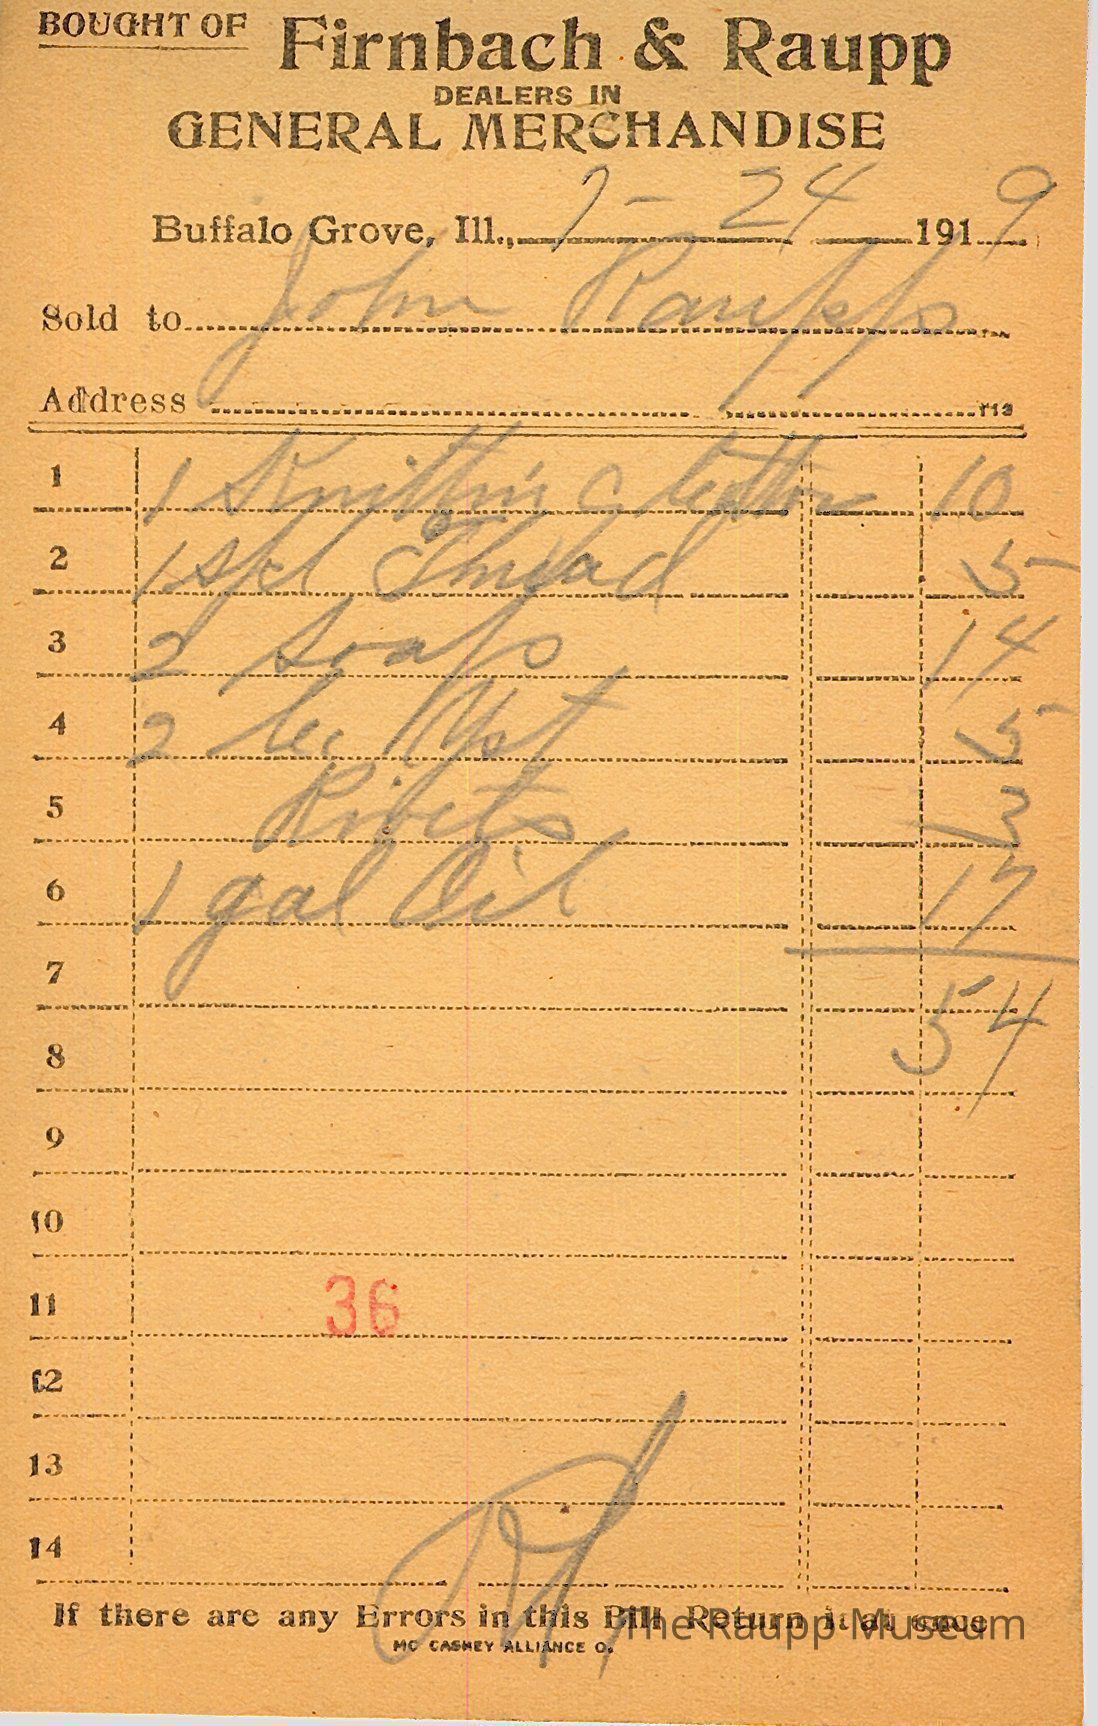 BOUGHT OF Firnbach & Raupp
DEALERS IN
GENERAL MERCHANDISE
Buffalo Grove, Ill., 7-24 1919
Sold to John Raupp
Address
1 1 Knitting Cotton 10
2 1 spl Thread 5
3 2 soap 14
4 2 Yst 5
5 Rivets 3
6 1 gal Oil 17
7 54
8
9
10
11 36
12
13
14
If there are any Errors in this Bill Return it at once
MC CASKEY ALLIANCE O.
The Raupp Museum